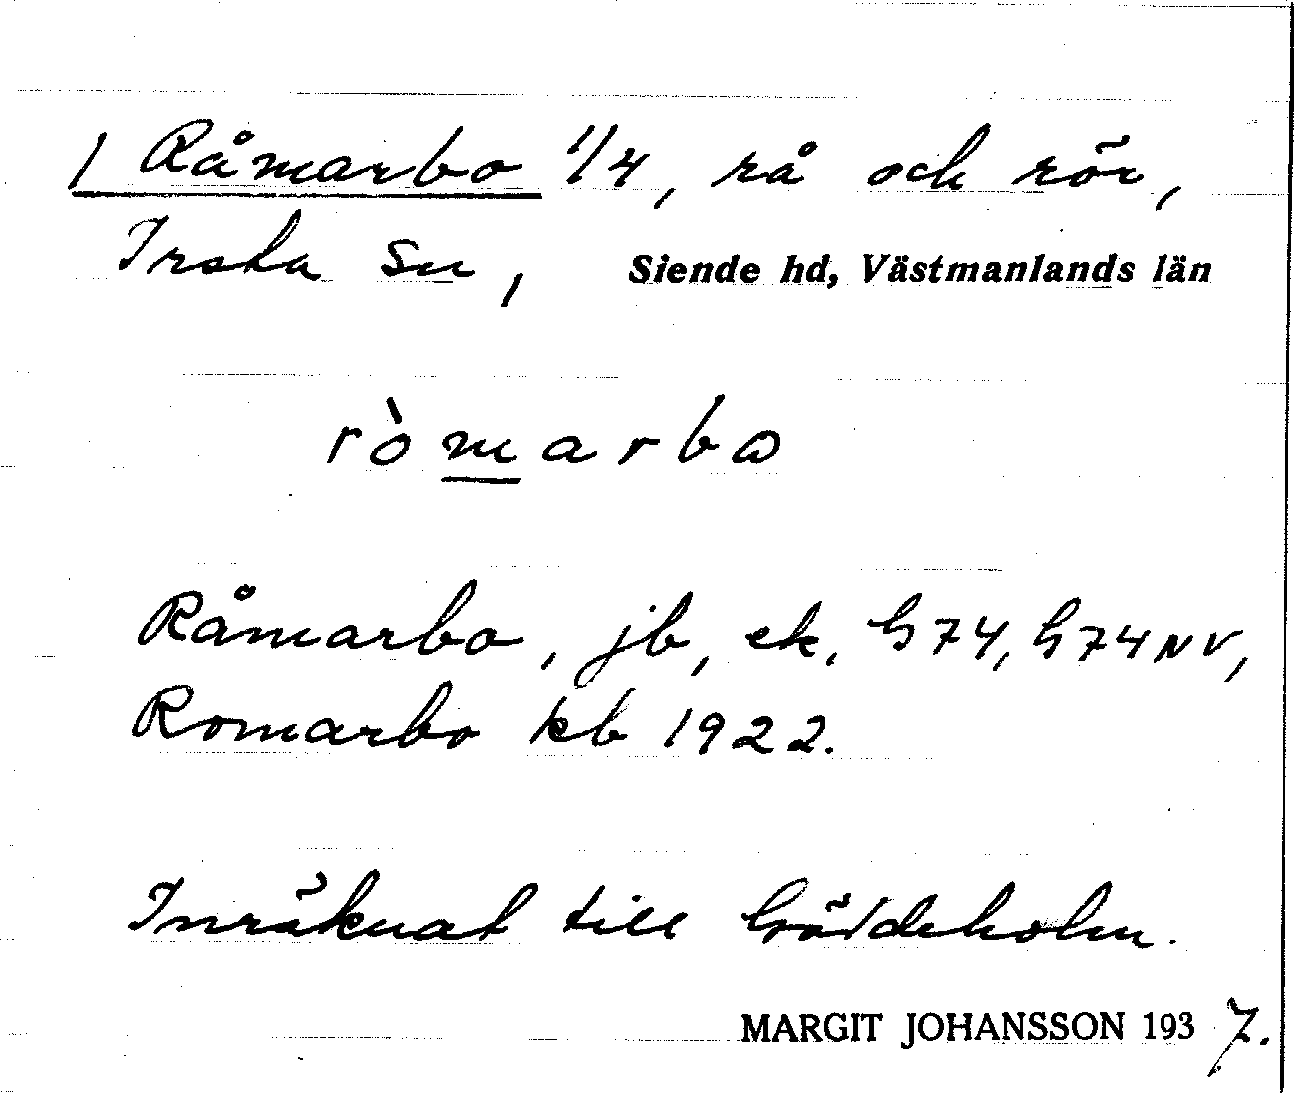 / Råmarbo 1/4, rå och rör,
Irsta sn, Siende hd, Västmanlands län
ròmarbω
Råmarbo, jb, ek, G74, G74NV,
Romarbo kb 1922.
Inräknat till Gäddeholm.
MARGIT JOHANSSON 1937.